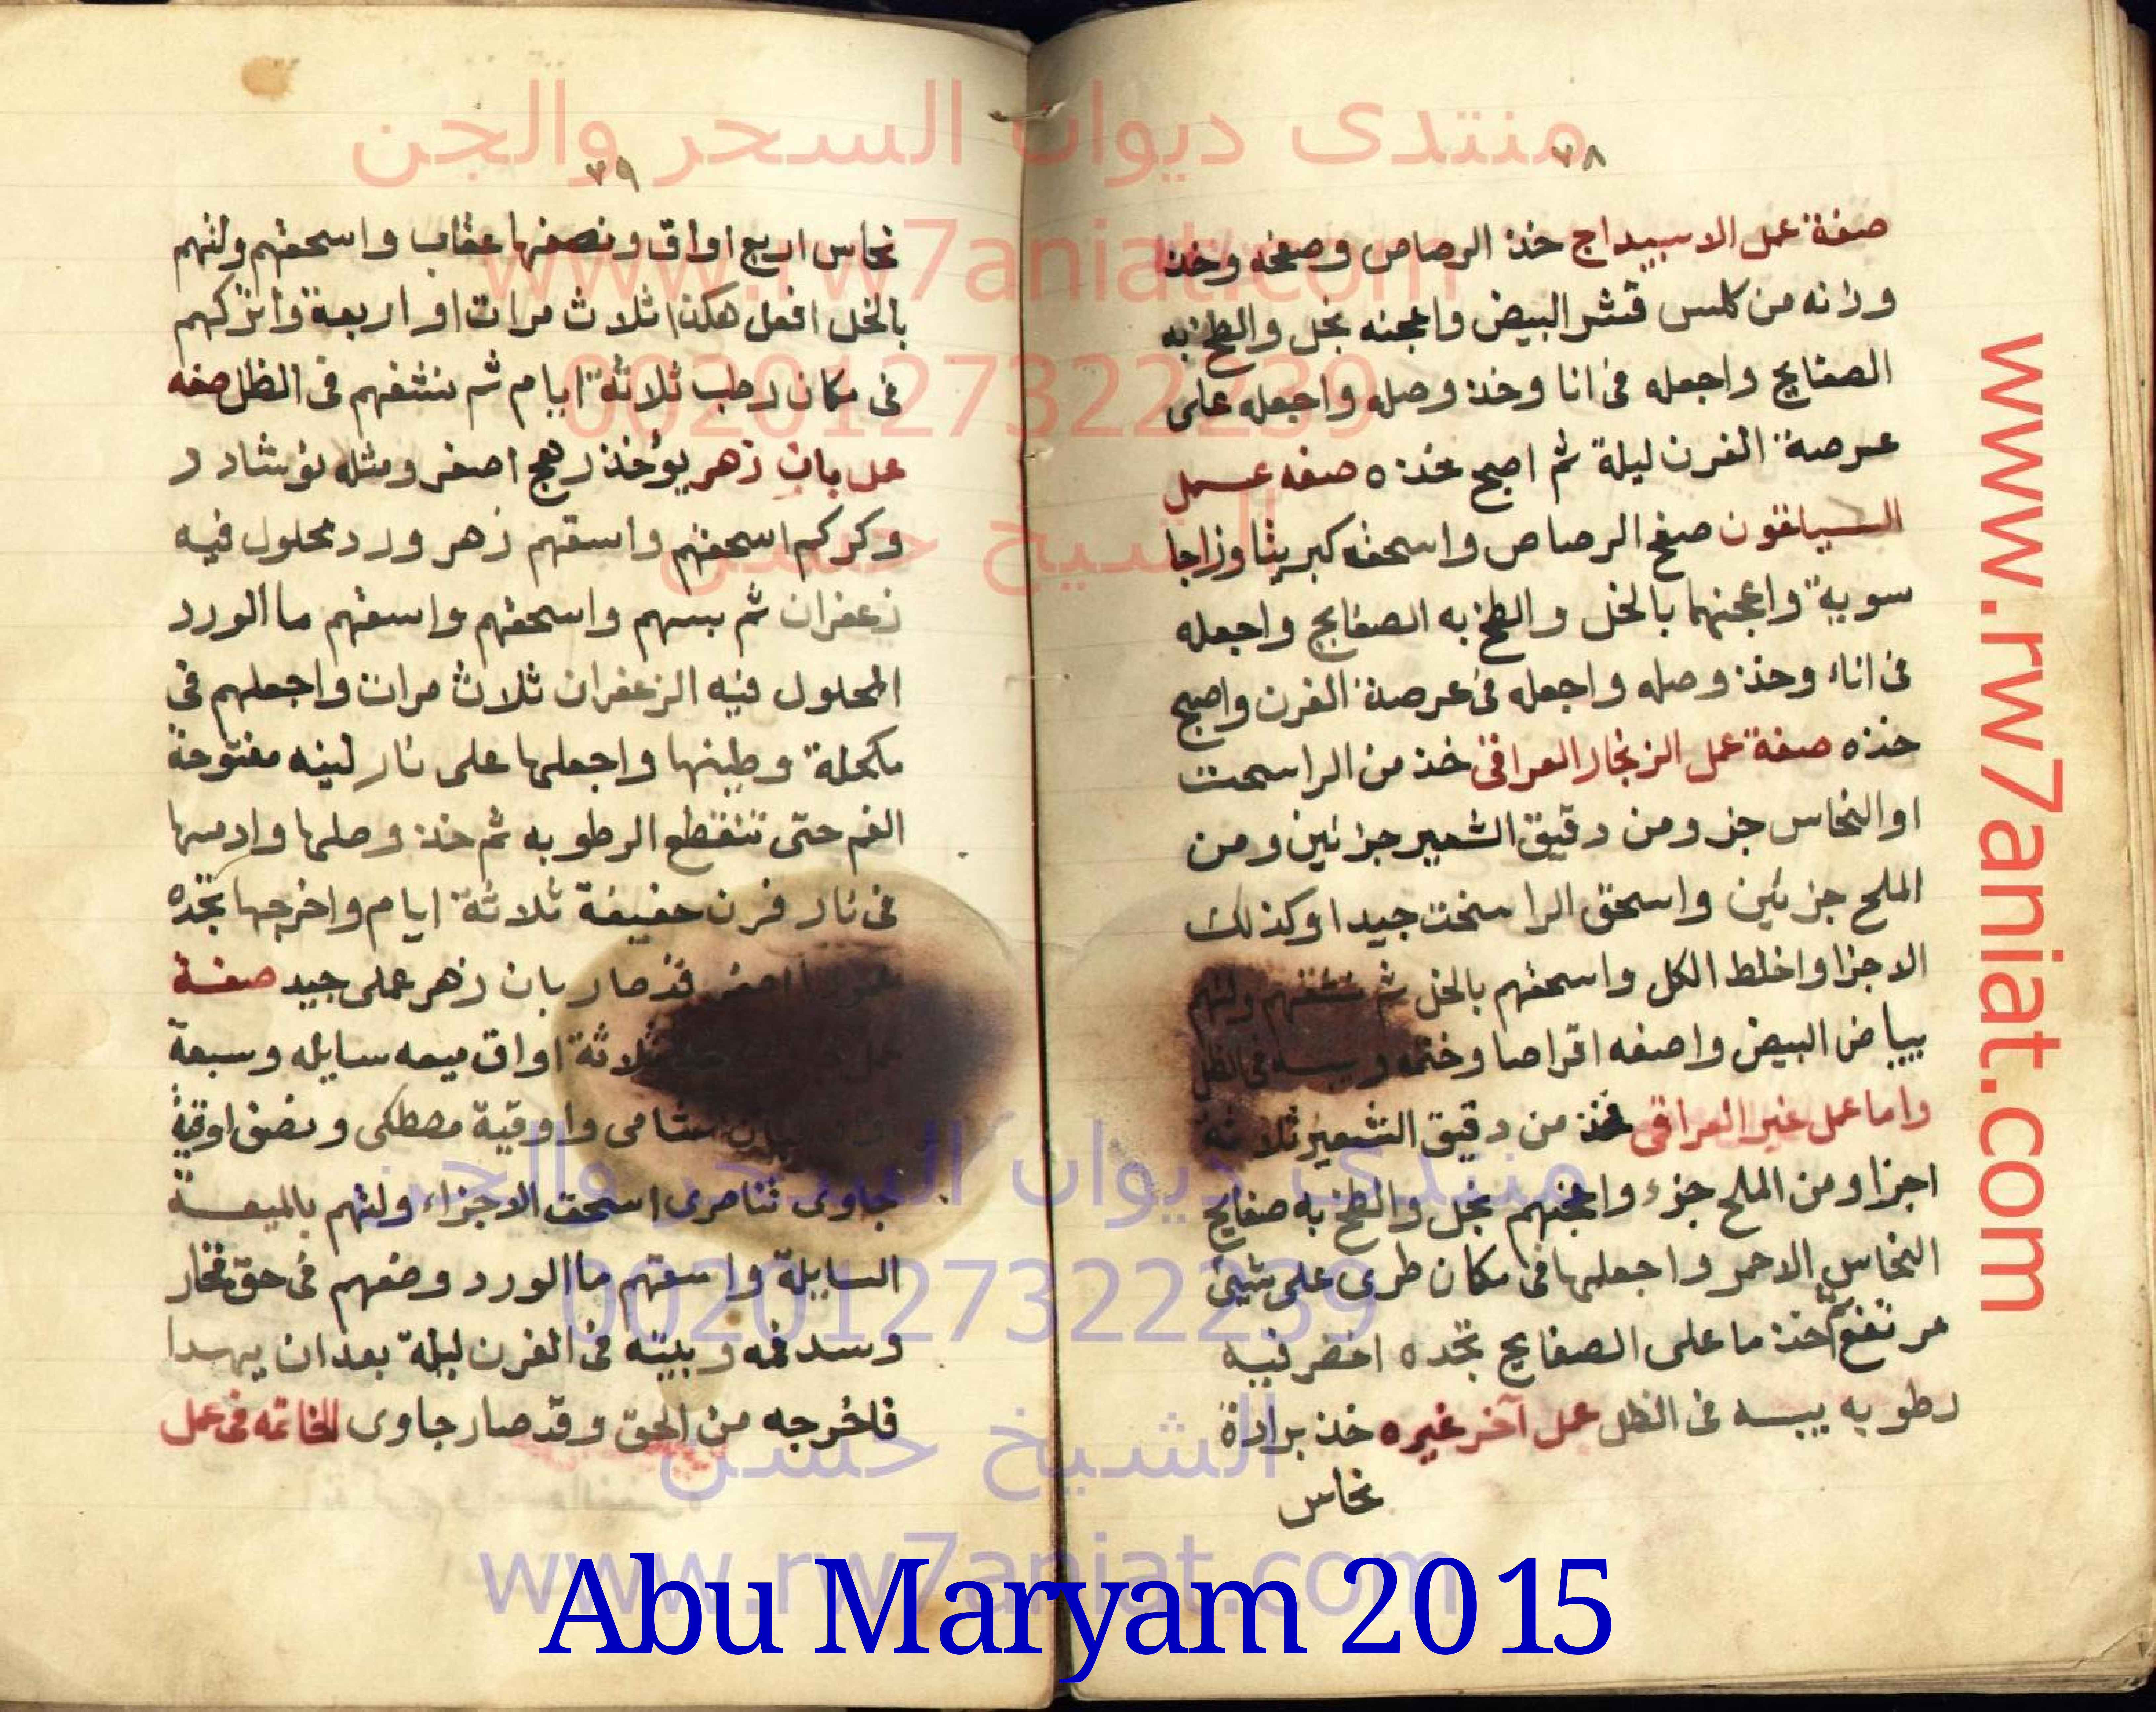 ٧٨
صفة عمل الاسبيداج خذ الرصاص وصفحه وخذ
وزانه من كلس قشر البيض واعجنه بخل والطخ به
الصفايح واجعله فى انا وخذ وصله واجعله على
عرصة الفرن ليلة ثم اصبح خذه صفه عمل
السياقون صفح الرصاص واسحقه كبريتا وزاجا
سوية واعجنهما بالخل والطخ به الصفايح واجعله
فى اناء وخذ وصله واجعله فى عرصة الفرن واصبح
خذه صفة عمل الزنجار العراقى خذ من الراسحت
او النحاس جز ومن دقيق الشعير جزئين ومن
الملح جزئين واسحق الراسخت جيدا وكذلك
الاجزا واخلط الكل واسحقهم بالخل ثم نشفهم ولتهم
ببياض البيض واصنعه اقراصا وختمه ويبسه فى الظل
واما عمل غير العراقى فخذ من دقيق الشعير ثلاثه
اجزا ومن الملح جزء واعجنهم بخل والطخ به صفايح
النحاس الاحمر واجعلها فى مكان طرى على شيئ
مرتفع ثم خذ ما على الصفايح تجده اخضر فيه
رطوبه يبسه فى الظل عمل آخر غيره خذ برادة
نحاس
٧٩
نحاس اربع اواق ونصفها عقاب واسحقهم ولتهم
بالخل افعل هكذا ثلاث مرات او اربعة واتركهم
فى مكان رطب ثلاثة ايام ثم نشفهم فى الظل صفه
عمل بان زهر يؤخذ رهج اصفر ومثله نوشادر
وكركم اسحقهم واسقهم زهر ورد محلول فيه
زعفران ثم يبسهم واسحقهم واسقهم ما الورد
المحلول فيه الزعفران ثلاث مرات واجعلهم فى
مكحلة وطينها واجعلها على نار لينه مفتوحة
الفم حتى تنقطع الرطوبه ثم خذ وصلها وادسها
فى نار فرن خفيفة ثلاثة ايام واخرجها تجده
اصفر قد صار بان زهر عملى جيد صفة
عمل ثلاثة اواق ميعه سايله وسبعة
شامى واوقية مصطكى ونصف اوقية
جاوى تناصرى اسحق الاجزاء ولتهم بالميعة
السايلة واسقهم ما الورد وضعهم فى حق فخار
وسد فمه وبيته فى الفرن ليلة بعد ان يهدا
فاخرجه من الحق وقد صار جاوى الخاتمه فى عمل
منتدى ديوان السحر والجن
www.rw7aniat.com
00201273222239
الشيخ حسن
منتدى ديوان السحر والجن
00201273222239
الشيخ حسن
www.rw7aniat.com
www.rw7aniat.com
Abu Maryam 2015